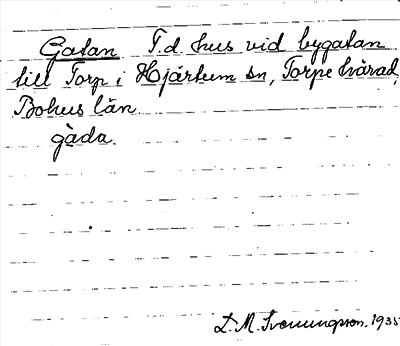 Gatan T.d. hus vid bygatan
till Torp i Hjärtum sn, Torpe härad,
Bohus län.
gàda.
D. M. Svenungsson. 1935